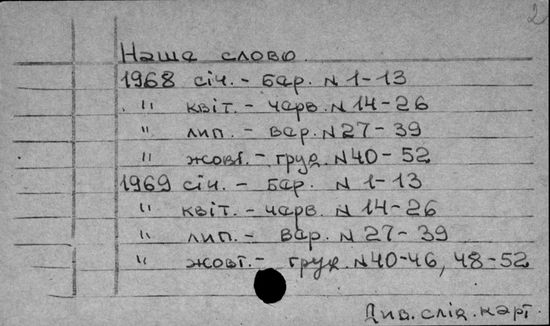 2
Наше слово
1968 січ. - бар. N 1-13
" квіт. - черв. N 14-26
" лип. - вар. N 27-39
" жовт. - груд. N 40-52
1969 січ. - бар. N 1-13
" квіт. - черв. N 14-26
" лип. - вар. N 27-39
" жовт. - груд. N 40-46, 48-52
Див. слід. карт.